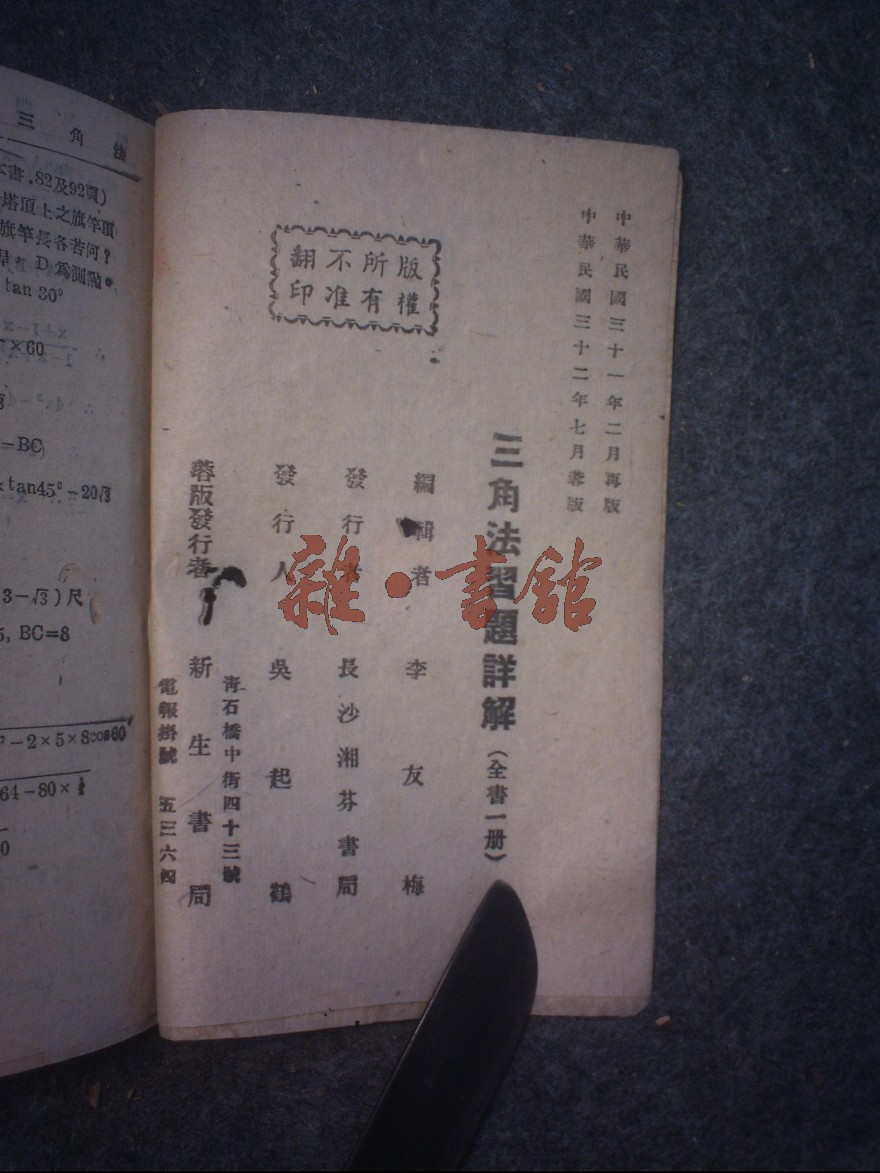 中華民國三十一年二月再版
中華民國三十二年七月蓉版
三角法習題詳解(全書一册)
編輯者 李友梅
發行者 長沙湘芬書局
發行人 吳起鶴
蓉版發行者 新生書局
青石橋中街四十三號
電報掛號 五三六四
版權所有
不准翻印
雜·書館
三角法
本書.82及92頁)
塔頂上之旗竿頂
旗竿長各若何?
D爲測點
tan 30°
×60
-BC
×tan45°-20√3
3-√3)尺
5, BC=8
-2×5×8cos60
64-80×
0